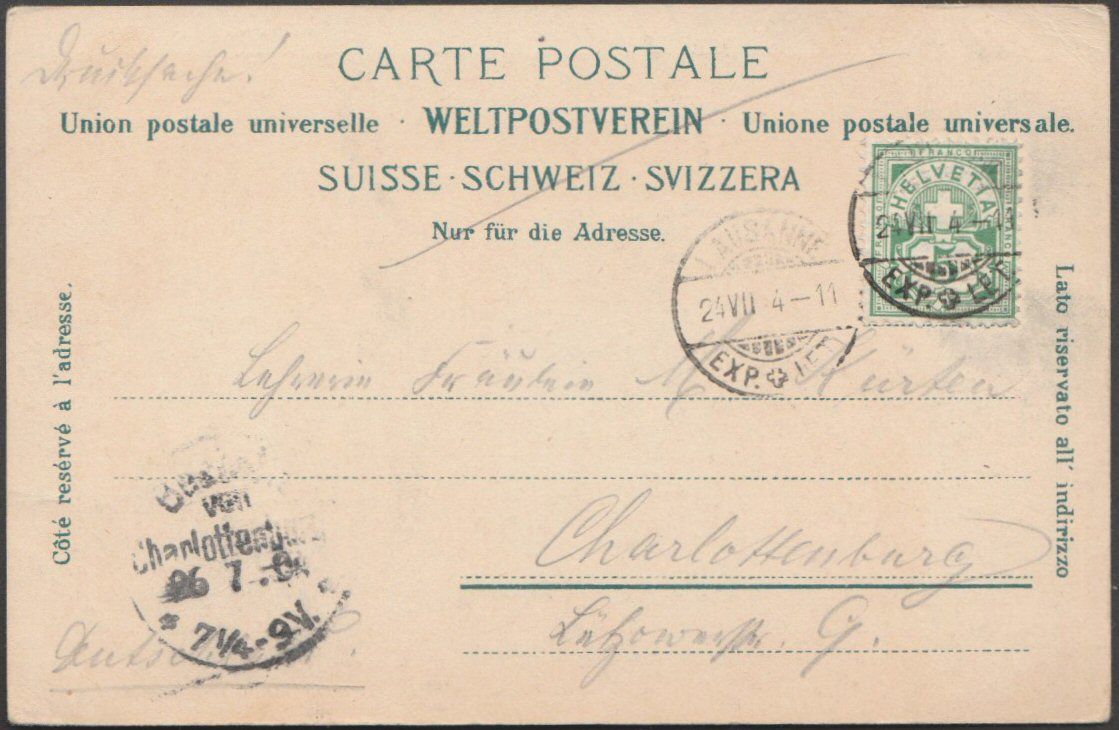 Drucksache!
CARTE POSTALE
Union postale universelle · WELTPOSTVEREIN · Unione postale universale.
SUISSE · SCHWEIZ · SVIZZERA
Nur für die Adresse.
FRANCO
HELVETIA
5
24 VII 4-11
EXP. LET.
LAUSANNE
24 VII 4-11
EXP. LET.
Côté resérvé à l'adresse.
Lato riservato all' indirizzo
Lehrerin Fräulein M. Kürten
Charlottenburg
Lützowerstr. 9.
von
Charlottenburg
26 7. 04
* 7¼-9V. *
Deutschland.